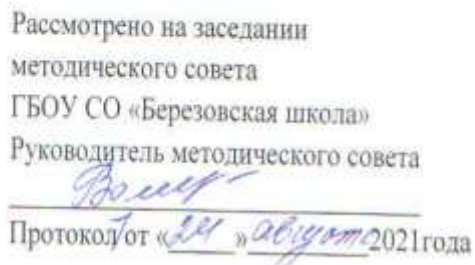 Рассмотрено на заседании
методического совета
ГБОУ СО «Березовская школа»
Руководитель методического совета
Протокол 1 от «24» августа 2021года